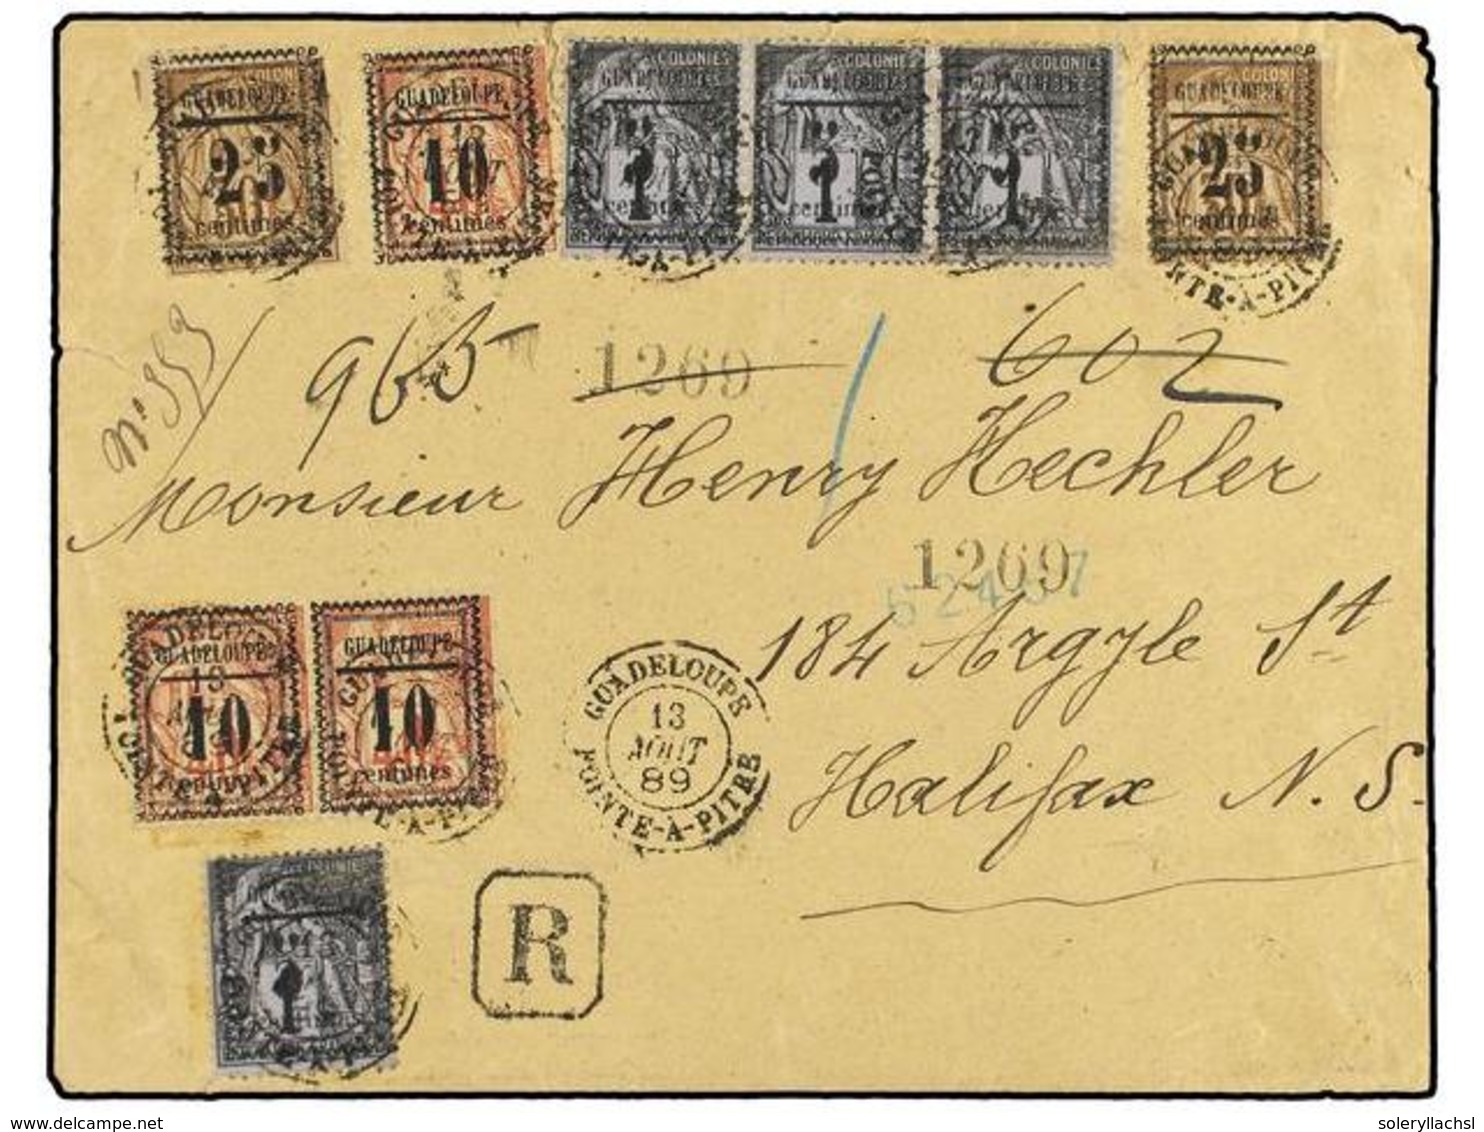 COLONIES COLONIES COLONIES
GUADELOUPE GUADELOUPE GUADELOUPE GUADELOUPE GUADELOUPE
25 10 1 1 1 25
centimes centimes centimes centimes
POINTE-À-PITRE
No 353
965 1269 602
Monsieur Henry Hechler
1269
52437
184 Argyle St
Halifax N.S.
GUADELOUPE GUADELOUPE
10 10
centimes centimes
GUADELOUPE
13
AOUT
89
POINTE-À-PITRE
COLONIES
1
R
soleryllachsl